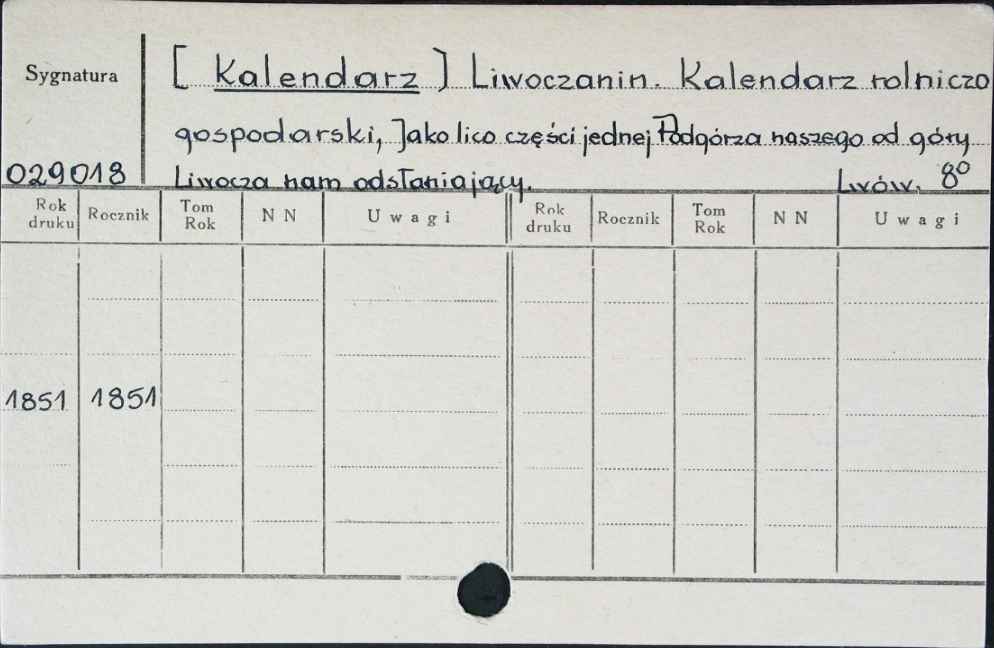 Sygnatura
[Kalendarz] Liwoczanin. Kalendarz rolniczo
gospodarski, Jako lico części jednej Podgórza naszego od góry
029018
Liwocza nam odsłaniający. Lwów. 8⁰
Rok druku Rocznik Tom Rok N N Uwagi Rok druku Rocznik Tom Rok N N Uwagi
1851 1851